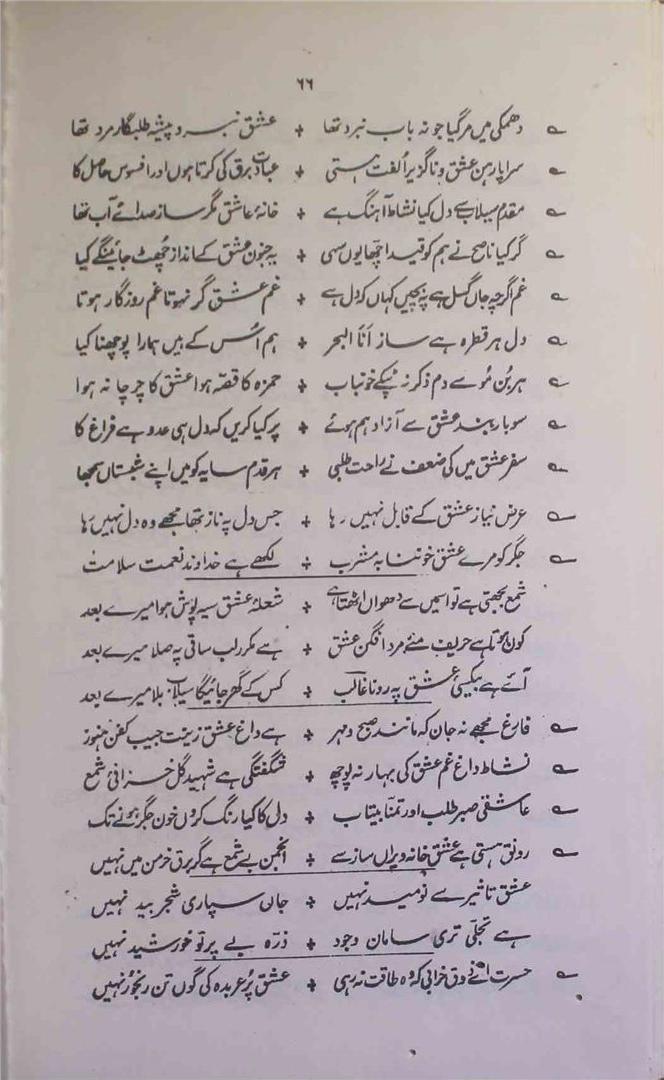 ۶۶
؎ دھمکی میں مرگیا جو نہ باب نبرد تھا + عشق نبرد پیشہ طلبگار مرد تھا
؎ سراپا رہن عشق و ناگزیر الفت ہستی + عبادت برق کی کرتا ہوں اور افسوس حاصل کا
؎ مقدم سیلاب سے دل کیا نشاط آہنگ ہے + خانۂ عاشق مگر ساز صدائے آب تھا
؎ گر کیا ناصح نے ہم کو قید اچھا یوں سہی + یہ جنون عشق کے انداز چھٹ جائینگے کیا
؎ غم اگرچہ جاں گسل ہے پہ بچیں کہاں کہ دل ہے + غم عشق گر نہوتا غم روزگار ہوتا
؎ دل ہر قطرہ ہے ساز انا البحر + ہم اُس کے ہیں ہمارا پوچھنا کیا
؎ ہر بُن مُو سے دم ذکر نہ ٹپکے خونباب + حمزہ کا قصّہ ہوا عشق کا چرچا نہ ہوا
؎ سو بار بند عشق سے آزاد ہم ہوئے + پر کیا کریں کہ دل ہی عدو ہے فراغ کا
؎ سفر عشق میں کی ضعف نے راحت طلبی + ہر قدم سایہ کو میں اپنے شبستاں سمجھا
؎ عرض نیاز عشق کے قابل نہیں رہا + جس دل پہ ناز تھا مجھے وہ دل نہیں رہا
؎ جگر کو مرے عشق خوننابہ مشرب + لکھے ہے خداوند نعمت سلامت
شمع بجھتی ہے تو اسمیں سے دھواں اٹھتا ہے + شعلۂ عشق سیہ پوش ہوا میرے بعد
کون ہوتا ہے حریف مئے مرد افگن عشق + ہے مکرر لب ساقی پہ صلا میرے بعد
آئے ہے بیکسیٔ عشق پہ رونا غالب + کس کے گھر جائیگا سیلاب بلا میرے بعد
؎ فارغ مجھے نہ جان کہ مانند صبح و مہر + ہے داغ عشق زینت جیب کفن ہنوز
؎ نشاط داغ غم عشق کی بہار نہ پوچھ + شگفتگی ہے شہید گل خزانیٔ شمع
؎ عاشقی صبر طلب اور تمنا بیتاب + دل کا کیا رنگ کروں خون جگر ہونے تک
؎ رونق ہستی ہے عشق خانہ ویراں ساز سے + انجمن بے شمع ہے گر برق خرمن میں نہیں
عشق تاثیر سے نومید نہیں + جاں سپاری شجر بید نہیں
ہے تجلّی تری سامان وجود + ذرّہ بے پرتو خورشید نہیں
؎ حسرت اے ذوق خرابی کہ وہ طاقت نہ رہی + عشق پُر عربدہ کی گوں تن رنجور نہیں